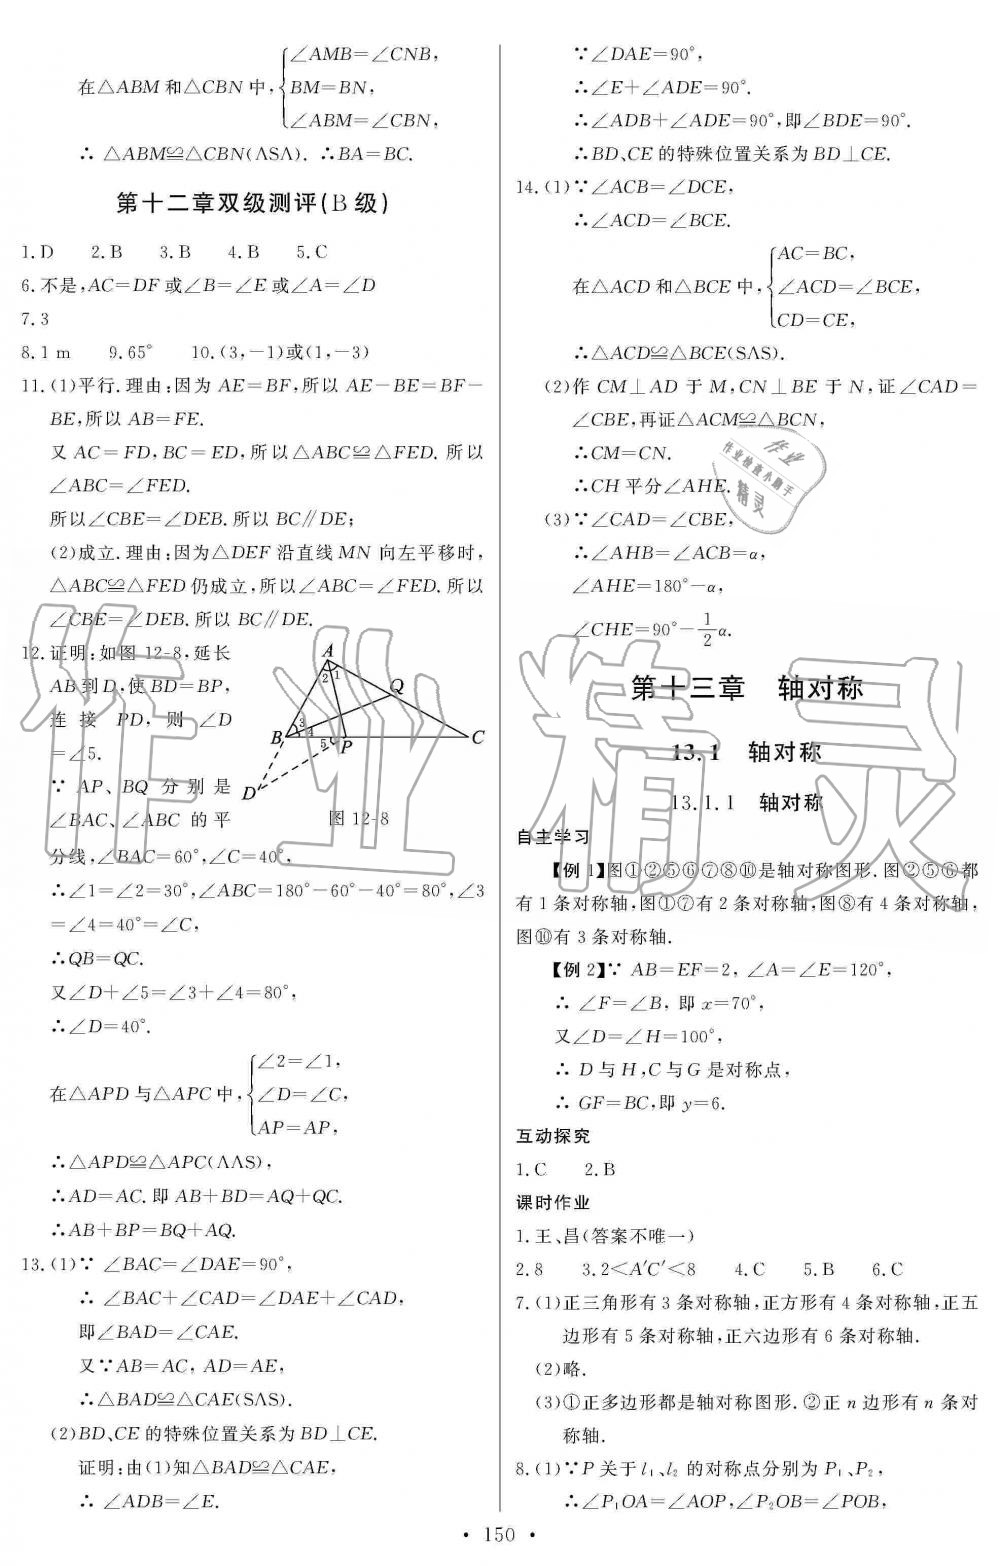 ∠AMB=∠CNB,
在△ABM和△CBN中, BM=BN,
∠ABM=∠CBN,
∴ △ABM≌△CBN(ASA). ∴BA=BC.
第十二章双级测评(B级)
1.D 2.B 3.B 4.B 5.C
6.不是,AC=DF或∠B=∠E或∠A=∠D
7.3
8.1 m 9.65° 10.(3,-1)或(1,-3)
11.(1)平行.理由:因为AE=BF,所以AE-BE=BF-
BE,所以AB=FE.
又AC=FD,BC=ED,所以△ABC≌△FED.所以
∠ABC=∠FED.
所以∠CBE=∠DEB.所以BC∥DE;
(2)成立.理由:因为△DEF沿直线MN向左平移时,
△ABC≌△FED仍成立,所以∠ABC=∠FED.所以
∠CBE=∠DEB.所以BC∥DE.
12.证明:如图12-8,延长
AB到D,使BD=BP,
连接PD,则∠D
=∠5.
∵ AP、BQ分别是
∠BAC、∠ABC的平
分线,∠BAC=60°,∠C=40°,
A
2 1
Q
3
B 4
5 P C
D
图12-8
∴∠1=∠2=30°,∠ABC=180°-60°-40°=80°,∠3
=∠4=40°=∠C,
∴QB=QC.
又∠D+∠5=∠3+∠4=80°,
∴∠D=40°.
∠2=∠1,
在△APD与△APC中, ∠D=∠C,
AP=AP,
∴△APD≌△APC(AAS),
∴AD=AC.即AB+BD=AQ+QC.
∴AB+BP=BQ+AQ.
13.(1)∵ ∠BAC=∠DAE=90°,
∴ ∠BAC+∠CAD=∠DAE+∠CAD,
即∠BAD=∠CAE.
又∵AB=AC, AD=AE,
∴△BAD≌△CAE(SAS).
(2)BD、CE的特殊位置关系为BD⊥CE.
证明:由(1)知△BAD≌△CAE,
∴ ∠ADB=∠E.
∵∠DAE=90°,
∴∠E+∠ADE=90°.
∴∠ADB+∠ADE=90°,即∠BDE=90°.
∴BD、CE的特殊位置关系为BD⊥CE.
14.(1)∵∠ACB=∠DCE,
∴∠ACD=∠BCE.
AC=BC,
在△ACD和△BCE中, ∠ACD=∠BCE,
CD=CE,
∴△ACD≌△BCE(SAS).
(2)作CM⊥AD于M,CN⊥BE于N,证∠CAD=
∠CBE,再证△ACM≌△BCN,
∴CM=CN.
∴CH平分∠AHE.
(3)∵∠CAD=∠CBE,
∴∠AHB=∠ACB=α,
∠AHE=180°-α,
∠CHE=90°-1/2α.
作业
作业检查小助手
精灵
第十三章 轴对称
13.1 轴对称
13.1.1 轴对称
自主学习
【例1】图①②⑤⑥⑦⑧⑩是轴对称图形.图②⑤⑥都
有1条对称轴,图①⑦有2条对称轴,图⑧有4条对称轴,
图⑩有3条对称轴.
【例2】∵ AB=EF=2, ∠A=∠E=120°,
∴ ∠F=∠B, 即x=70°,
又∠D=∠H=100°,
∴ D与H,C与G是对称点,
∴ GF=BC,即y=6.
互动探究
1.C 2.B
课时作业
1.王、昌(答案不唯一)
2.8 3.2<A′C′<8 4.C 5.B 6.C
7.(1)正三角形有3条对称轴,正方形有4条对称轴,正五
边形有5条对称轴,正六边形有6条对称轴.
(2)略.
(3)①正多边形都是轴对称图形.②正n边形有n条对
称轴.
8.(1)∵P关于l₁、l₂的对称点分别为P₁、P₂,
∴∠P₁OA=∠AOP,∠P₂OB=∠POB,
作业精灵
• 150 •